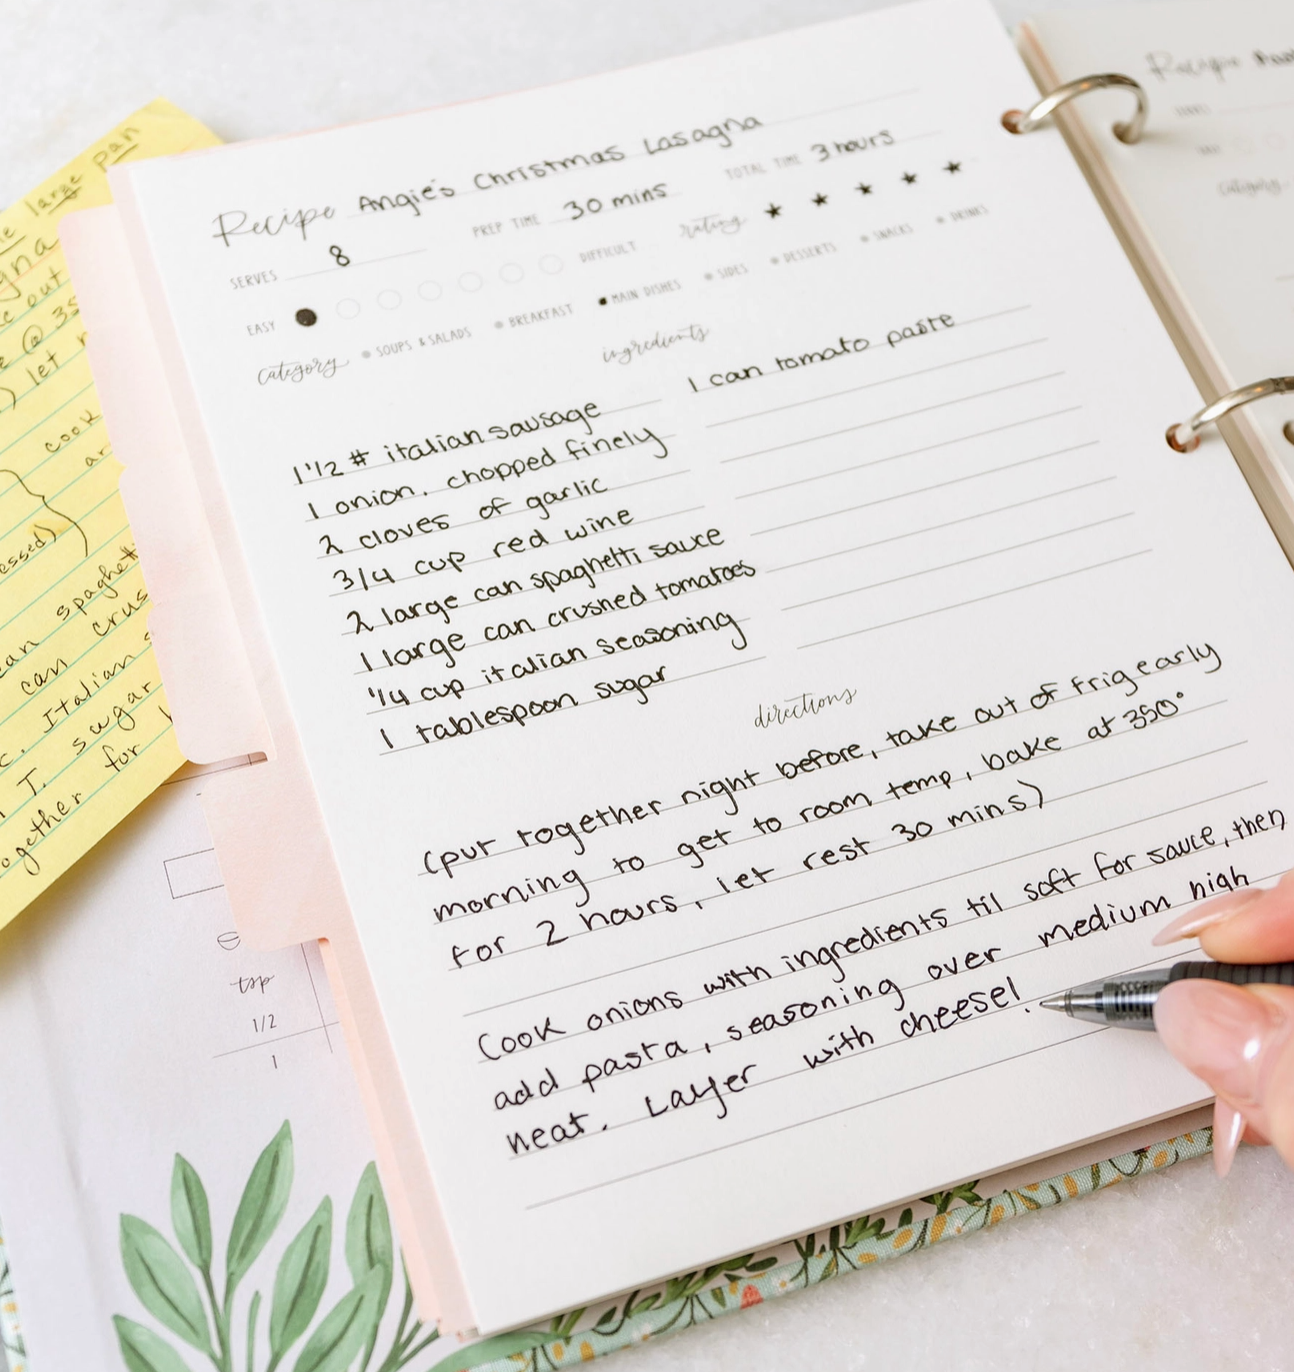 large pan
Recipe Angie's Christmas Lasagna
SERVES 8 PREP TIME 30 mins TOTAL TIME 3 hours
EASY DIFFICULT rating ★ ★ ★ ★ ★
category SOUPS & SALADS BREAKFAST MAIN DISHES SIDES DESSERTS SNACKS DRINKS
ingredients
1 1/2 # italian sausage
1 onion, chopped finely
2 cloves of garlic
3/4 cup red wine
2 large can spaghetti sauce
1 large can crushed tomatoes
1/4 cup italian seasoning
1 tablespoon sugar
1 can tomato paste
directions
(put together night before, take out of frig early
morning to get to room temp, bake at 350°
for 2 hours, let rest 30 mins)
Cook onions with ingredients til soft for sauce, then
add pasta, seasoning over medium high
heat. Layer with cheese!
out
@ 35
) let
cook
essed)
can spaghetti
can crus
c. Italian s
T. sugar
ogether for
tsp
1/2
1
Recipe
category